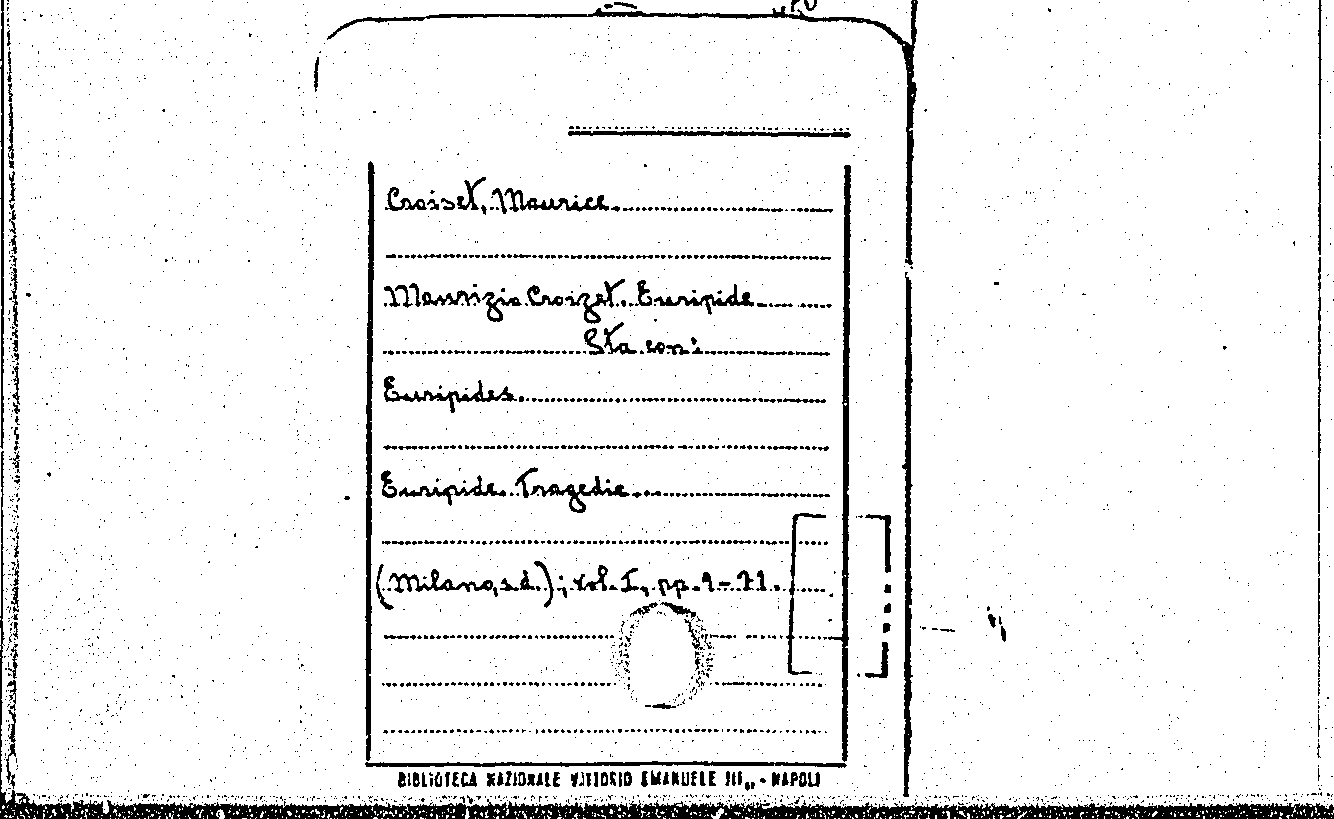 Croiset, Maurice.
Maurizio Croizet. Euripide
Sta con:
Euripides.
Euripide. Tragedie..
(Milano, s.d.); vol. I, pp. 9-71.
BIBLIOTECA NAZIONALE VITTORIO EMANUELE III„ - NAPOLI